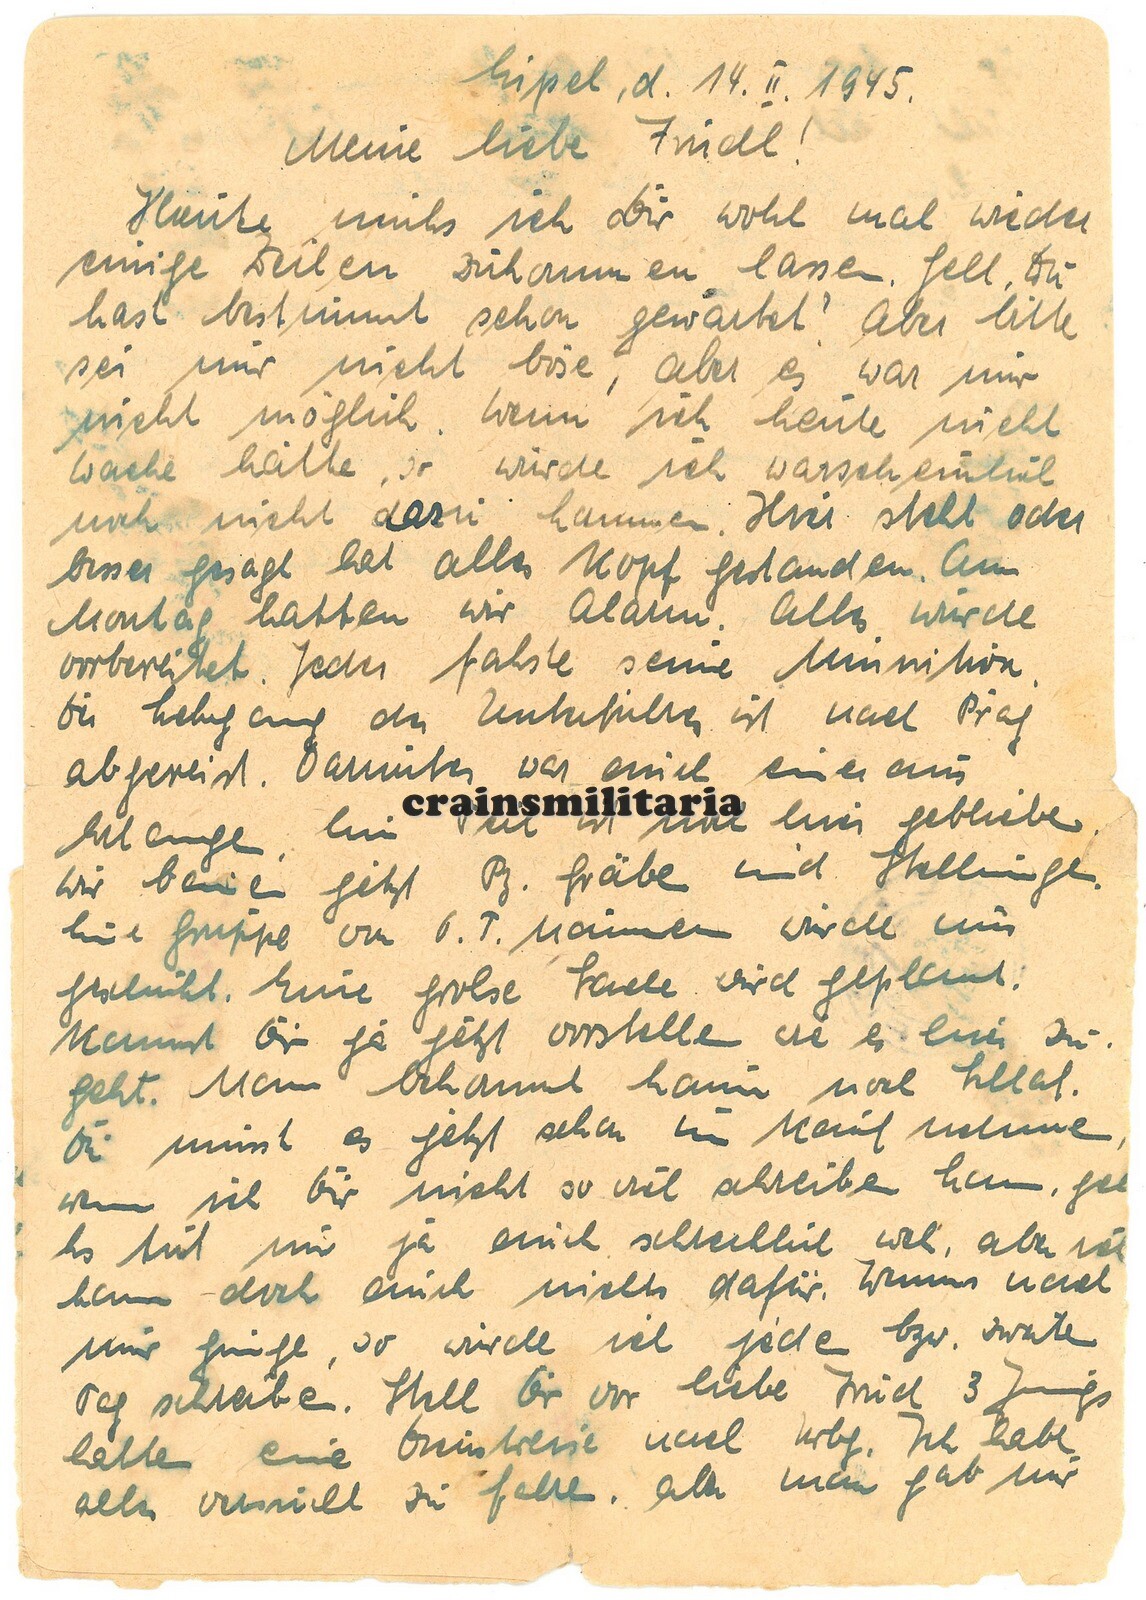 Lipel, d. 14. II. 1945.
Meine liebe Friedl!
Heute muß ich Dir wohl mal wieder
einige Zeilen zukommen lassen. Gell, Du
hast bestimmt schon gewartet! Aber bitte
sei mir nicht böse, aber es war mir
nicht möglich. Wenn ich heute nicht
Wache hätte, so würde ich warscheinlich
noch nicht dazu kommen. Hier steht oder
besser gesagt hat alles Kopf gestanden. Am
Montag hatten wir Alarm. Alles wurde
vorbereitet. Jeder faßte seine Munition.
Der Lehrgang der Unterführer ist nach Prag
abgereist. Darunter war auch einer aus
crainsmilitaria
Ein Teil ist noch hier geblieben.
Wir bauen jetzt Pz. Gräben und Stellungen.
Eine Gruppe von O.T. Männern wurde uns
geschickt. Eine große Sache wird geplant.
Kannst Dir ja jetzt vorstellen wie es hier zu-
geht. Man bekommt kaum noch Schlaf.
Du musst es jetzt schon in Kauf nehmen,
wenn ich Dir nicht so viel schreiben kann, gell
Es tut mir ja auch schrecklich weh, aber ich
kann doch auch nichts dafür. Wenns nach
mir ginge, so würde ich jeden bzw. zweiten
Tag schreiben. Stell Dir vor liebe Friedl 3 Jungs
hatten eine Dienstreise nach
Ich habe
alles versucht zu fahren, aber man gab mir